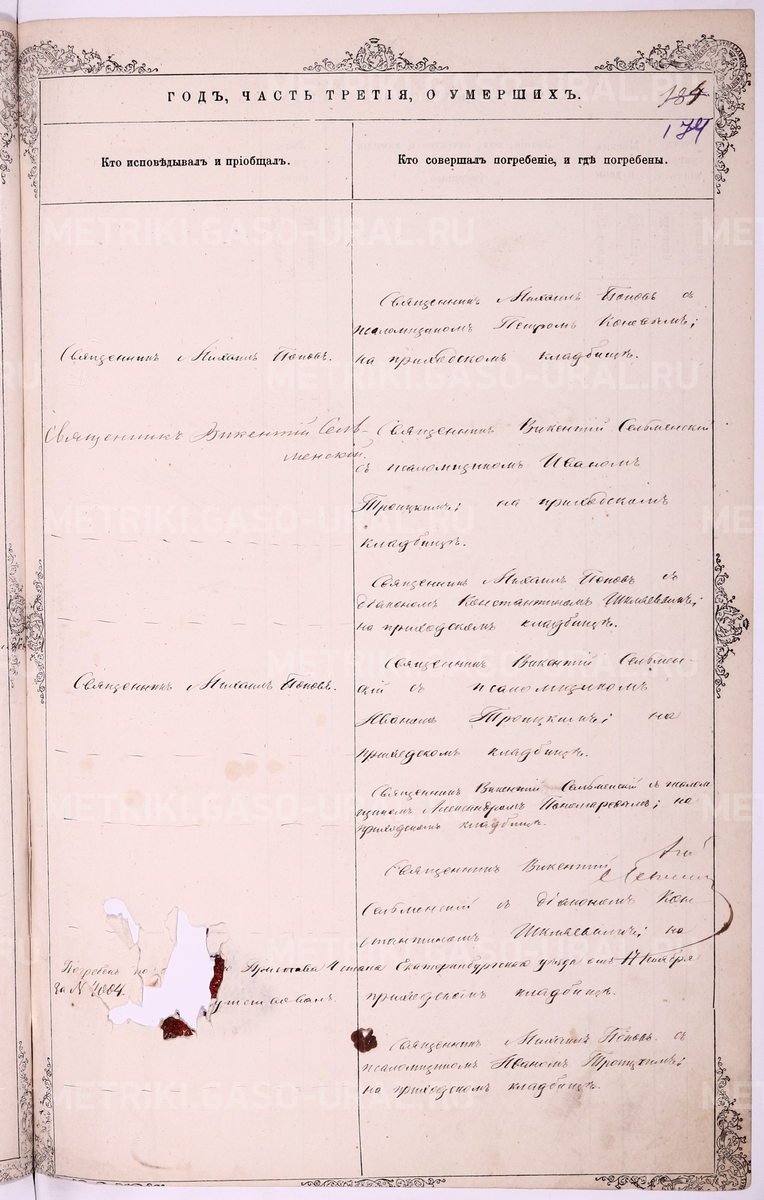 ГОДЪ, ЧАСТЬ ТРЕТІЯ, О УМЕРШИХЪ.
184
174
Кто исповѣдывалъ и пріобщалъ.
Кто совершалъ погребеніе, и гдѣ погребены.
METRIKI.GASO-URAL.RU
Священникъ Михаилъ Поповъ съ
псаломщикомъ Петромъ
на приходскомъ кладбищѣ.
Священникъ Михаилъ Поповъ.
Священникъ Викентій Сельменскій
съ псаломщикомъ Иваномъ
Троицкимъ; на приходскомъ
кладбищѣ.
Священникъ Викентій Сель-
менскій.
Священникъ Михаилъ Поповъ съ
діакономъ Константиномъ Шкляевымъ;
на приходскомъ кладбищѣ.
Священникъ Викентій Сельмен-
скій съ псаломщикомъ
Иваномъ Троицкимъ; на
приходскомъ кладбищѣ.
Священникъ Михаилъ Поповъ.
Священникъ Викентій Сельменскій съ псалом
щикомъ Александромъ Пономаревымъ; на
приходскомъ кладбищѣ.
Священникъ Викентій
Сельменскій съ діакономъ Кон-
стантиномъ Шкляевымъ; на
приходскомъ кладбищѣ.
Погребенъ по
Пристава 1 стана Екатеринбургскаго уѣзда отъ 17 Ноября
за № 4004.
Священникъ Михаилъ Поповъ съ
псаломщикомъ Иваномъ Троицкимъ;
на приходскомъ кладбищѣ.